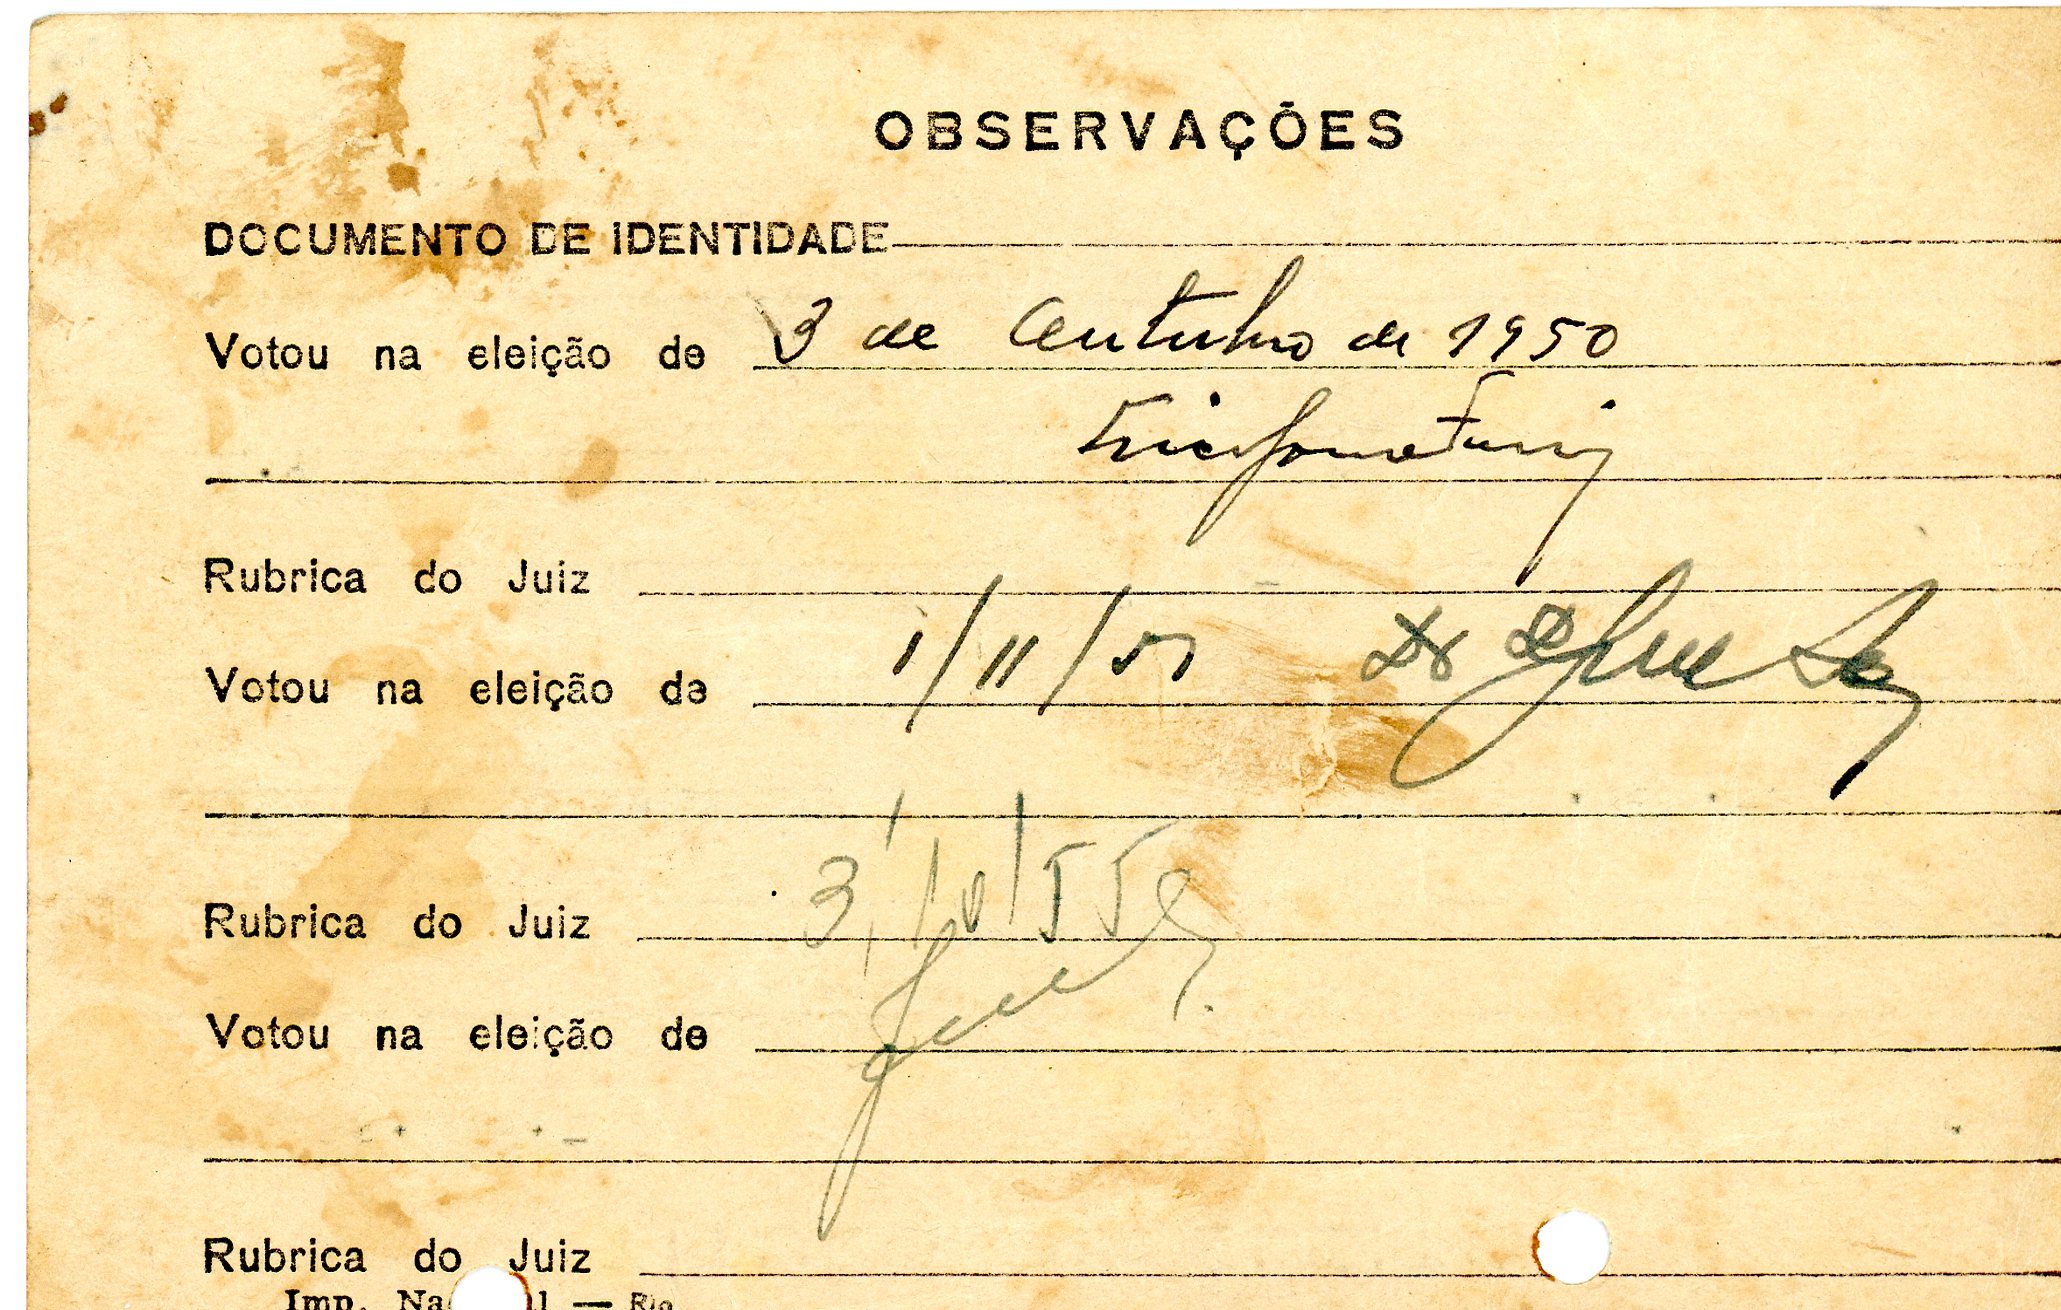 OBSERVAÇÕES
DOCUMENTO DE IDENTIDADE
Votou na eleição de 3 de Outubro de 1950
Rubrica do Juiz
Votou na eleição de 1/11/51
3/10/55
Rubrica do Juiz
Votou na eleição de
Rubrica do Juiz
Imp. — Rio